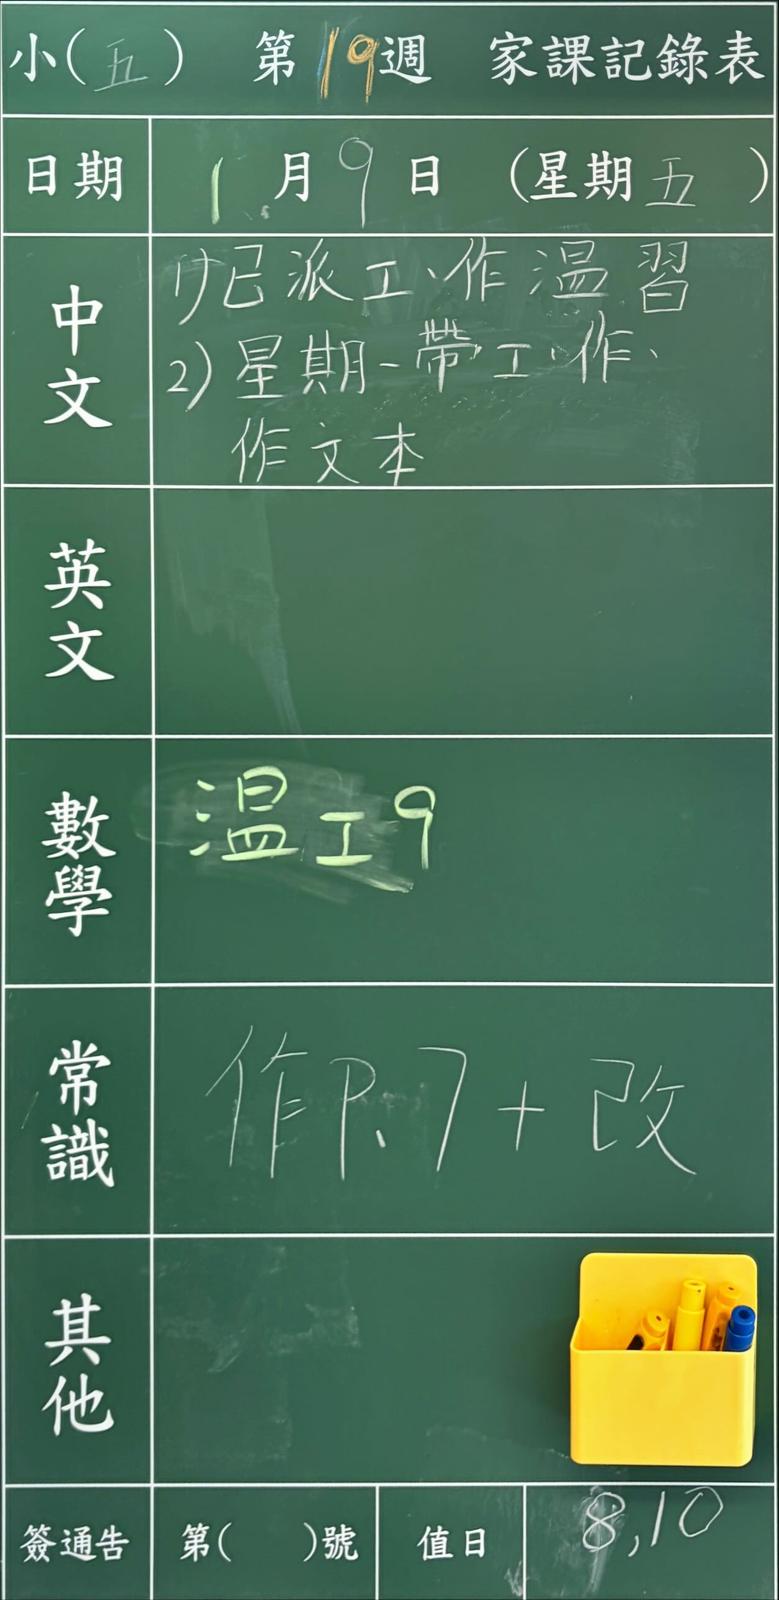 小(五) 第19週 家課記錄表
日期 1月9日 (星期五)
中文
1)已派工作溫習
2)星期一帶工作、
作文本
英文
數學
温工9
常識
作P.7+改
其他
簽通告 第( )號 值日 8,10